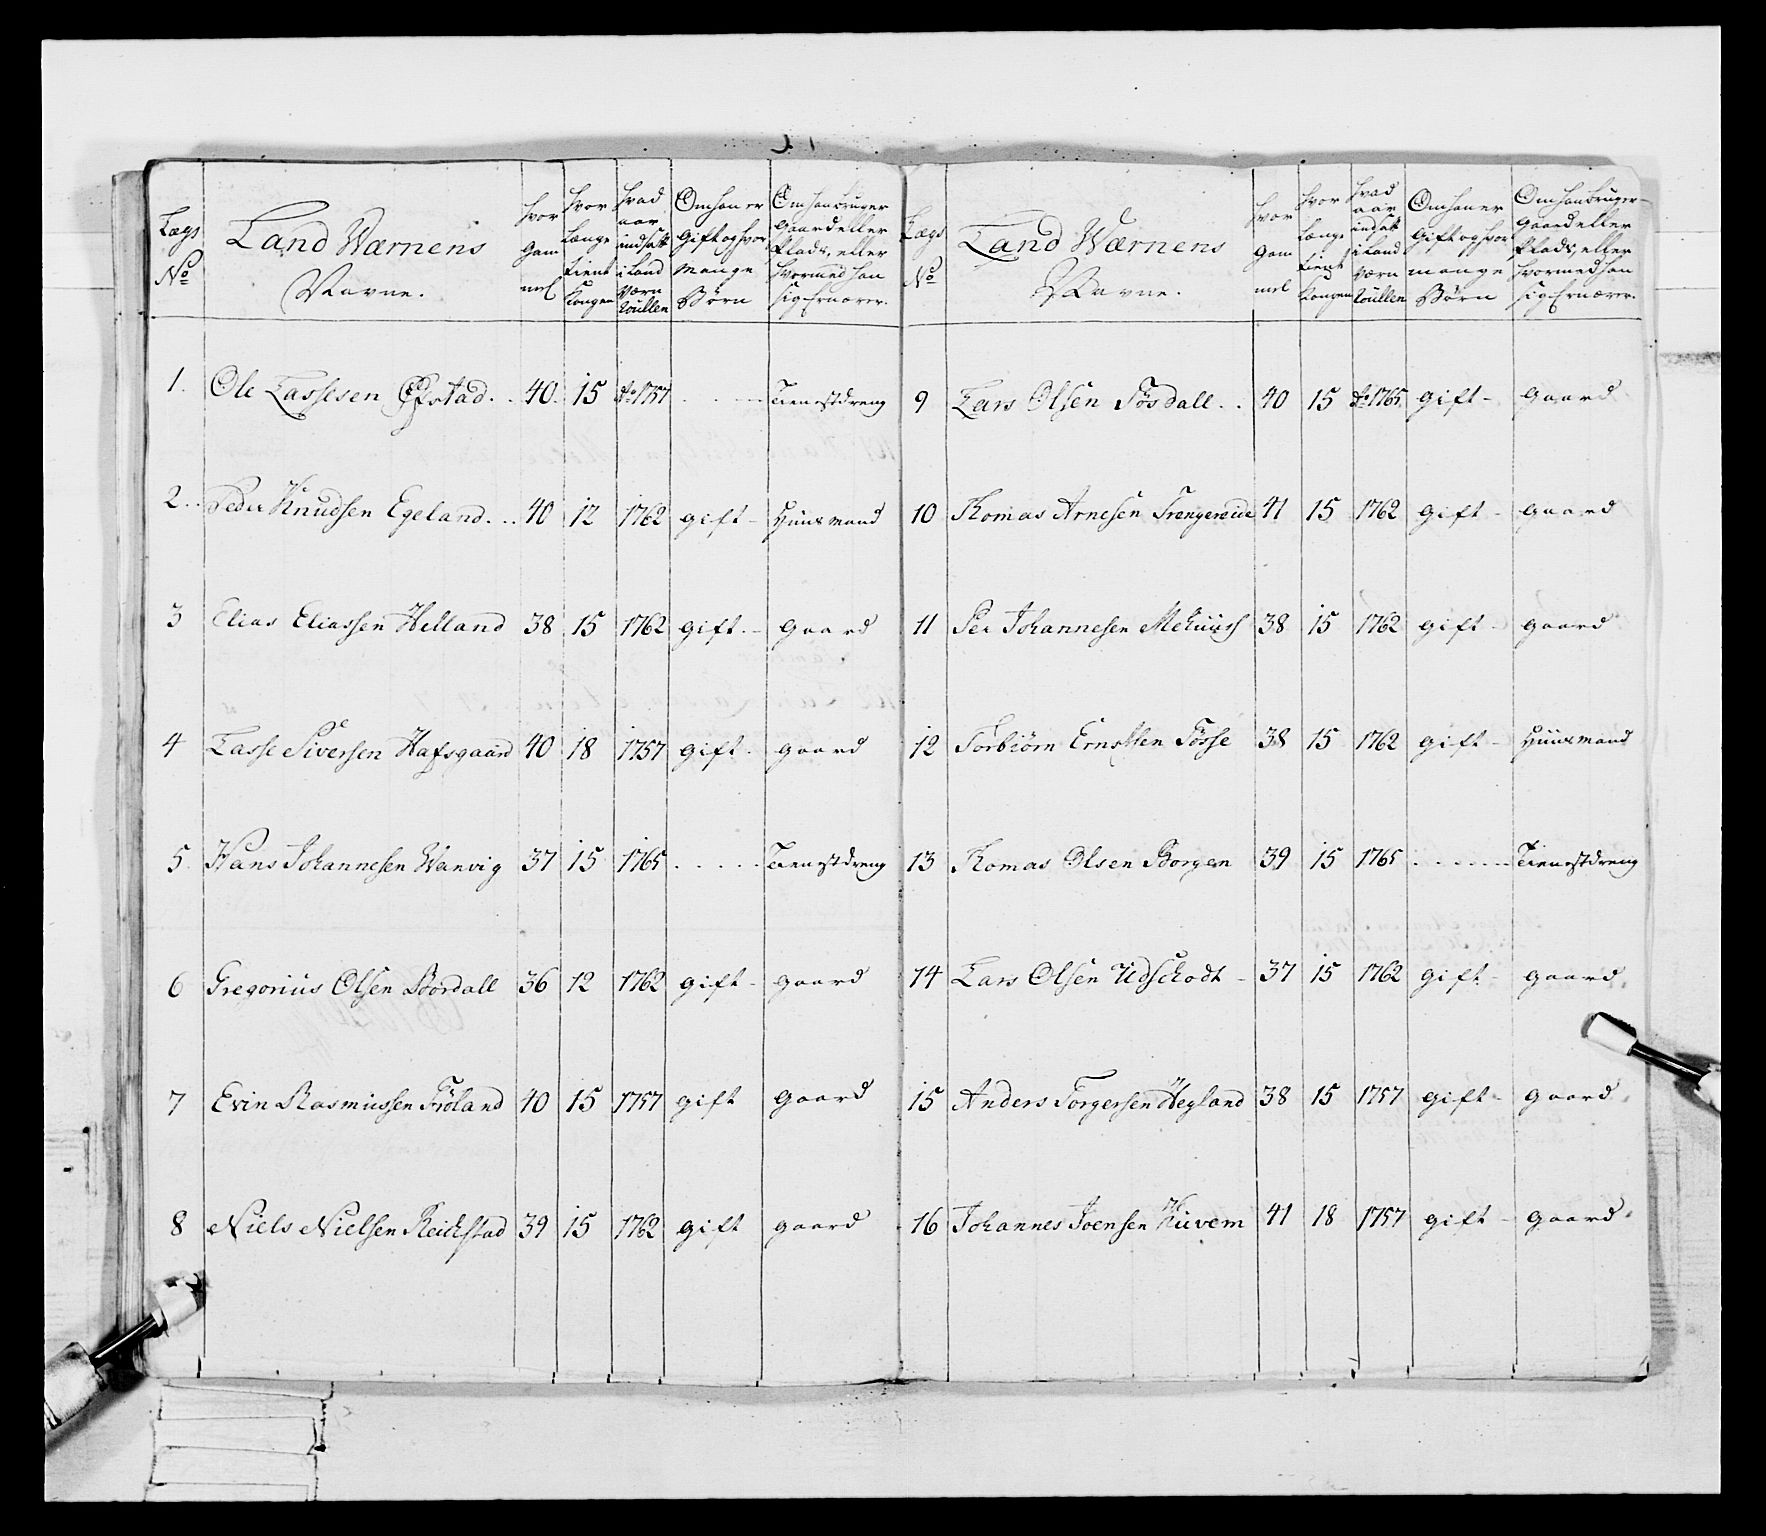 Lægs No
Land Wærnens Navne.
Hvor Gammel
Hvor Længe tient Kongen
Hvad aar indsatt i Land Wærn Roullen
Om han er Gift og hvor mange Børn
Om han bruger Gaard eller Plads, eller hvormed han sig Ernærer.
1. Ole Tassesen . . 40. 15 Ao 1757 . . . Tienestdreng
2. Peder Knudsen Egeland. . . 40 12 1762 gift - Huusmand
3 Elias Eliassen Helland 38 15 1762 gift. - Gaard
4 Tasse Siversen Hafsgaard 40 18 1757 gift. gaard
5. Hans Johannesen Wanvig 37 15 1765 . . . . Tienestdreng
6 Gregorius Olsen Bordall 36 12 1762 gift - gaard
7 Evin Rasmussen Fröland 40 15 1757 gift Gaard
8 Niels Nielsen Reichstad 39 15 1762 gift gaard
Lægs No
Land Wærnens Navne.
Hvor Gammel
Hvor Længe tient Kongen
Hvad aar indsatt i Land Wærn Roullen
Om han er Gift og hvor mange Børn
Om han bruger Gaard eller Plads, eller hvormed han sig Ernærer.
9 Lars Olsen Tösdall . . 40 15 Ao 1765 gift - Gaard
10 Thomas Arnesen Trengereide 41 15 1762 gift - gaard
11 Per Johannesen 38 15 1762 gift - gaard
12 Torbiörn Ernstsen Tösse 38 15 1762 gift - Huusmand
13 Thomas Olsen Borgen 39 15 1765 . . . . Tienestdreng
14 Lars Olsen Udschodt - 37 15 1762 gift - gaard
15 Anders Torgersen Hegland 38 15 1757 gift - gaard
16 Johannes Joensen Huvem 41 18 1757 gift - gaard